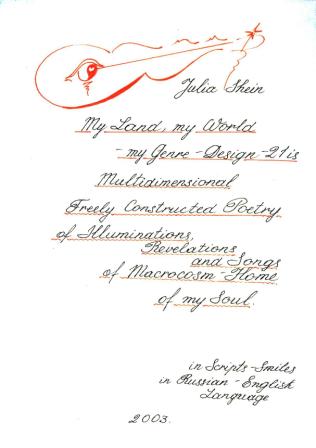 Julia Shein
My Land, my World
- my Genre - Design - 21 is
Multidimensional
Freely Constructed Poetry
of Illuminations,
Revelations
and Songs
of Macrocosm - Home
of my Soul.
in Scripts - Smiles
in Russian - English
Language
2003.